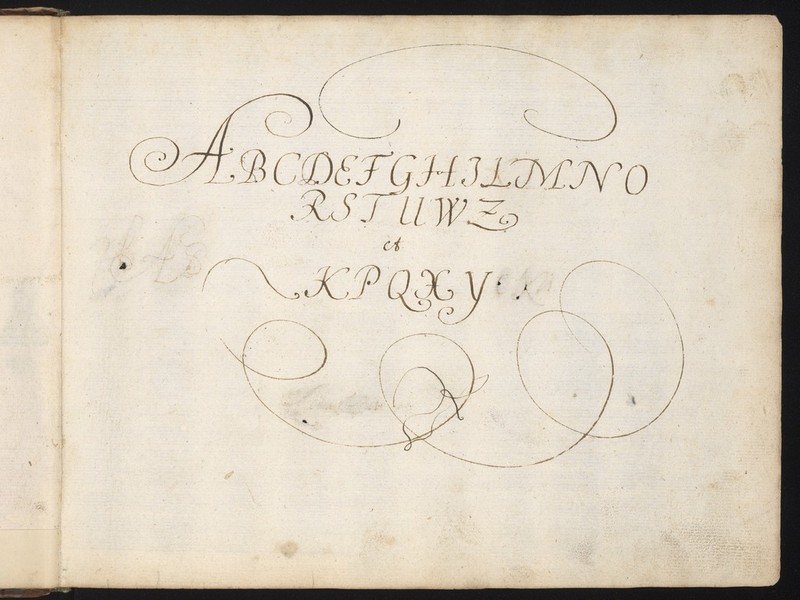 ABCDEFGHILMNO
RSTUWZ
et
KPQXY